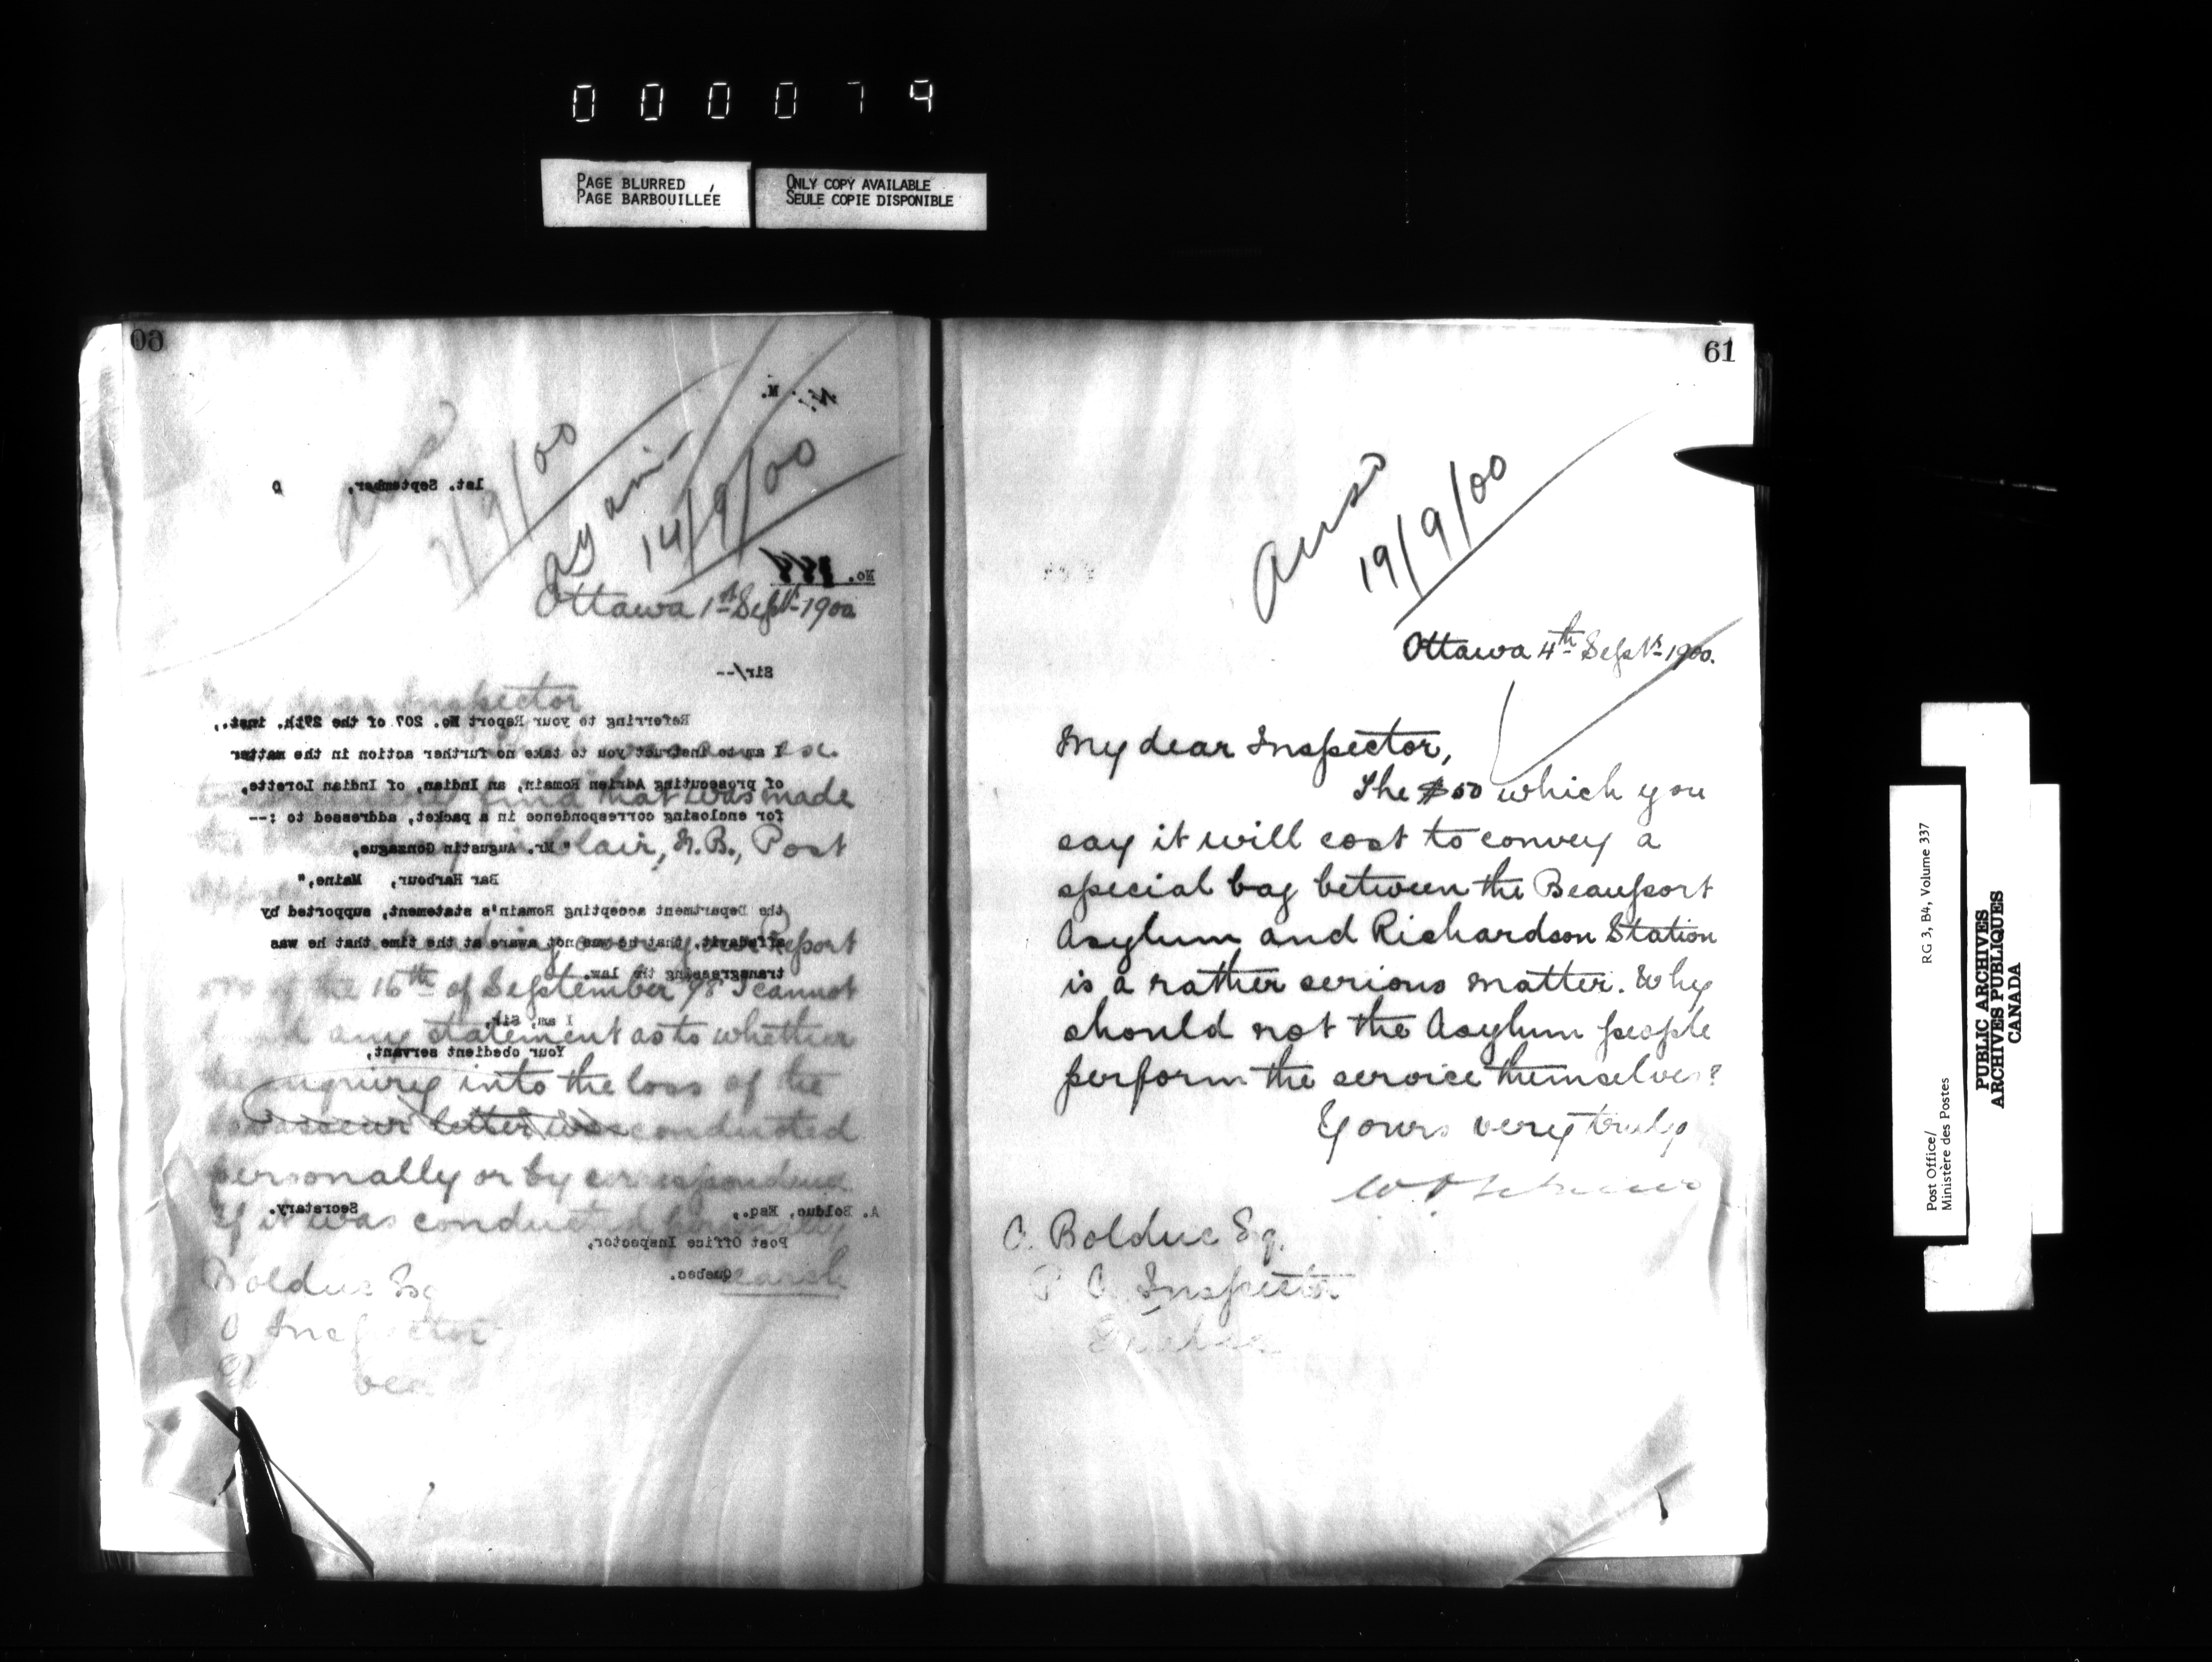 0 0 0 0 7 9
PAGE BLURRED
PAGE BARBOUILLÉE
ONLY COPY AVAILABLE
SEULE COPIE DISPONIBLE
60
14/9/00
1st. September,
No.
Ottawa 1st Sept. 1900
Sir/--
Inspector
Referring to your Report No. 207 of the 29th. inst.,
I am to instruct you to take no further action in the matter
of prosecuting Adrien Romain, an Indian, of Indian Lorette,
find that was made
for enclosing correspondence in a packet, addressed to :--
"Mr. Augustin Gonzague,
Blair, N.B., Post
Bar Harbour, Maine,"
the Department accepting Romain's statement, supported by
affidavit, that he was not aware at the time that he was
over your Report
transgressing the law.
of the 16th of September 98 I cannot
I am, Sir,
any statement as to whether
Your obedient servant,
the inquiry into the loss of the
letter was conducted
personally or by correspondence
Secretary.
A. Bolduc, Esq.,
If it was conducted personally
Post Office Inspector,
Quebec.
search
Bolduc Esq
O Inspector
61
Ansd
19/9/00
Ottawa 4th Septr. 1900.
My dear Inspector,
The $50 which you
say it will cost to convey a
special bag between the Beauport
Asylum and Richardson Station
is a rather serious matter. Why
should not the Asylum people
perform the service themselves?
Yours very truly
A. Bolduc Esq.
P. O. Inspector
Quebec
Post Office/
Ministère des Postes
RG 3, B4, Volume 337
PUBLIC ARCHIVES
ARCHIVES PUBLIQUES
CANADA